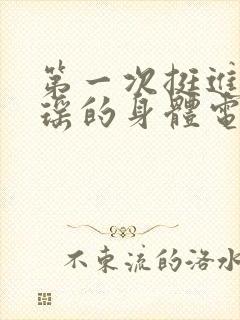 第一次挺進
瑤的身體電
不束流的洛水